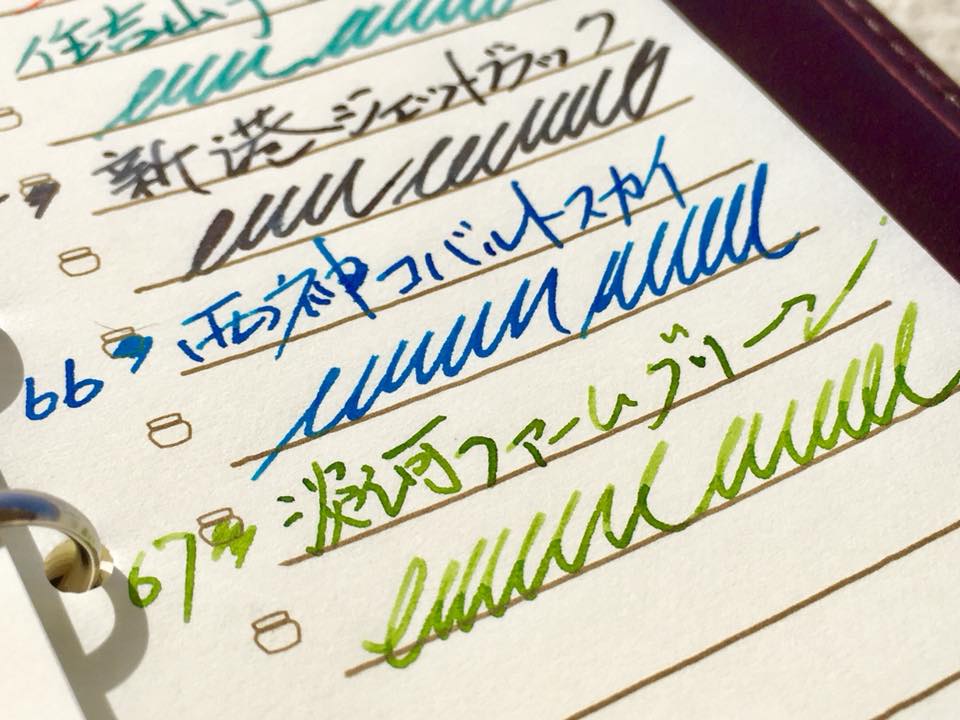 住吉山手
新港ジェットブラック
66 西神コバルトスカイ
67 淡河ファームグリーン